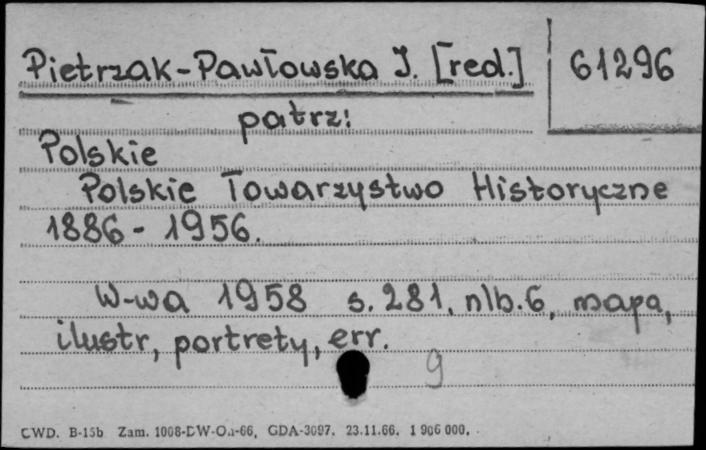 Pietrzak-Pawłowska I. [red.]
61296
patrz:
Polskie
Polskie Towarzystwo Historyczne
1886 - 1956.
W-wa 1958 s. 281, nlb. 6, mapa,
ilustr, portrety, err.
9
CWD. B-15b Zam. 1008-DW-On-66, GDA-3097. 23.11.66. 1 906 000.